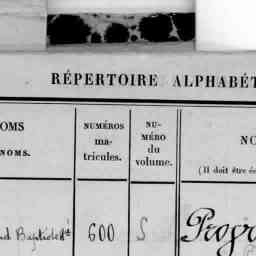 RÉPERTOIRE ALPHABÉT
OMS
NOMS.
NUMÉROS
ma-
tricules.
NU-
MÉRO
du
volume.
NO
(Il doit être éc
600
5